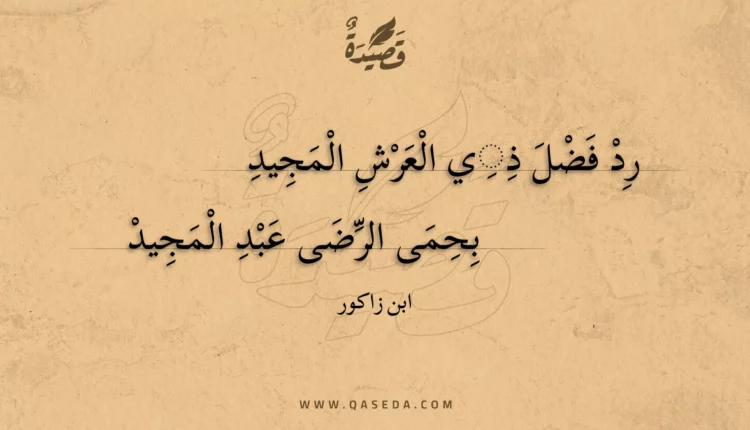 قَصِيدَةٌ
رِدْ فَضْلَ ذِ◌ِي الْعَرْشِ الْمَجِيدِ
بِحِمَى الرِّضَى عَبْدِ الْمَجِيدْ
ابن زاكور
WWW.QASEDA.COM